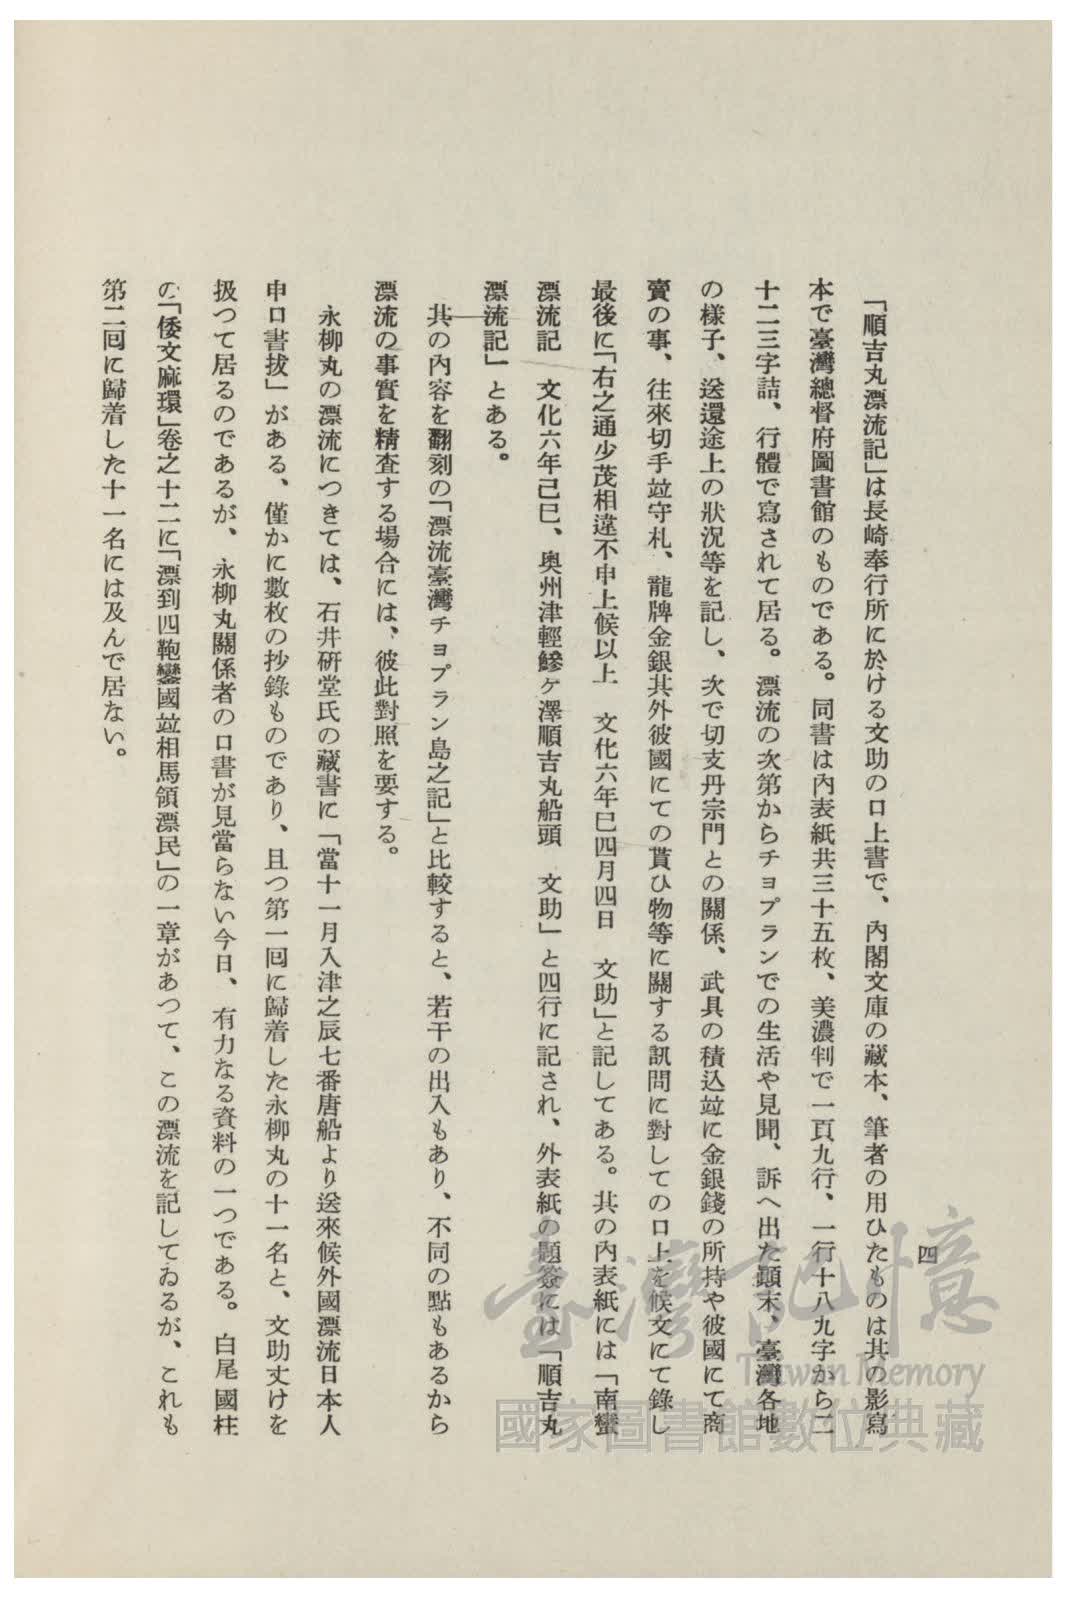 四
「順吉丸漂流記」は長崎奉行所に於ける文助の口上書で、內閣文庫の藏本、筆者の用ひたものは其の影寫
本で臺灣總督府圖書館のものである。同書は內表紙共三十五枚、美濃判で一頁九行、一行十八九字から二
十二三字詰、行體で寫されて居る。漂流の次第からチョプランでの生活や見聞、訴へ出た顚末、臺灣各地
の樣子、送還途上の狀況等を記し、次で切支丹宗門との關係、武具の積込竝に金銀錢の所持や彼國にて商
賣の事、往來切手竝守札、龍牌金銀其外彼國にての貰ひ物等に關する訊問に對しての口上を候文にて錄し
最後に「右之通少茂相違不申上候以上　文化六年巳四月四日　文助」と記してある。其の內表紙には「南蠻
漂流記　文化六年己巳、奧州津輕鰺ヶ澤順吉丸船頭　文助」と四行に記され、外表紙の題簽には「順吉丸
漂流記」とある。
其の內容を翻刻の「漂流臺灣チョプラン島之記」と比較すると、若干の出入もあり、不同の點もあるから
漂流の事實を精査する場合には、彼此對照を要する。
永柳丸の漂流につきては、石井硏堂氏の藏書に「當十一月入津之辰七番唐船より送來候外國漂流日本人
申口書拔」がある、僅かに數枚の抄錄ものであり、且つ第一回に歸着した永柳丸の十一名と、文助丈けを
扱つて居るのであるが、永柳丸關係者の口書が見當らない今日、有力なる資料の一つである。白尾國柱
の「倭文麻環」卷之十二に「漂到四鞄鑾國竝相馬領漂民」の一章があつて、この漂流を記してゐるが、これも
第二回に歸着した十一名には及んで居ない。
臺灣記憶
Taiwan Memory
國家圖書館數位典藏